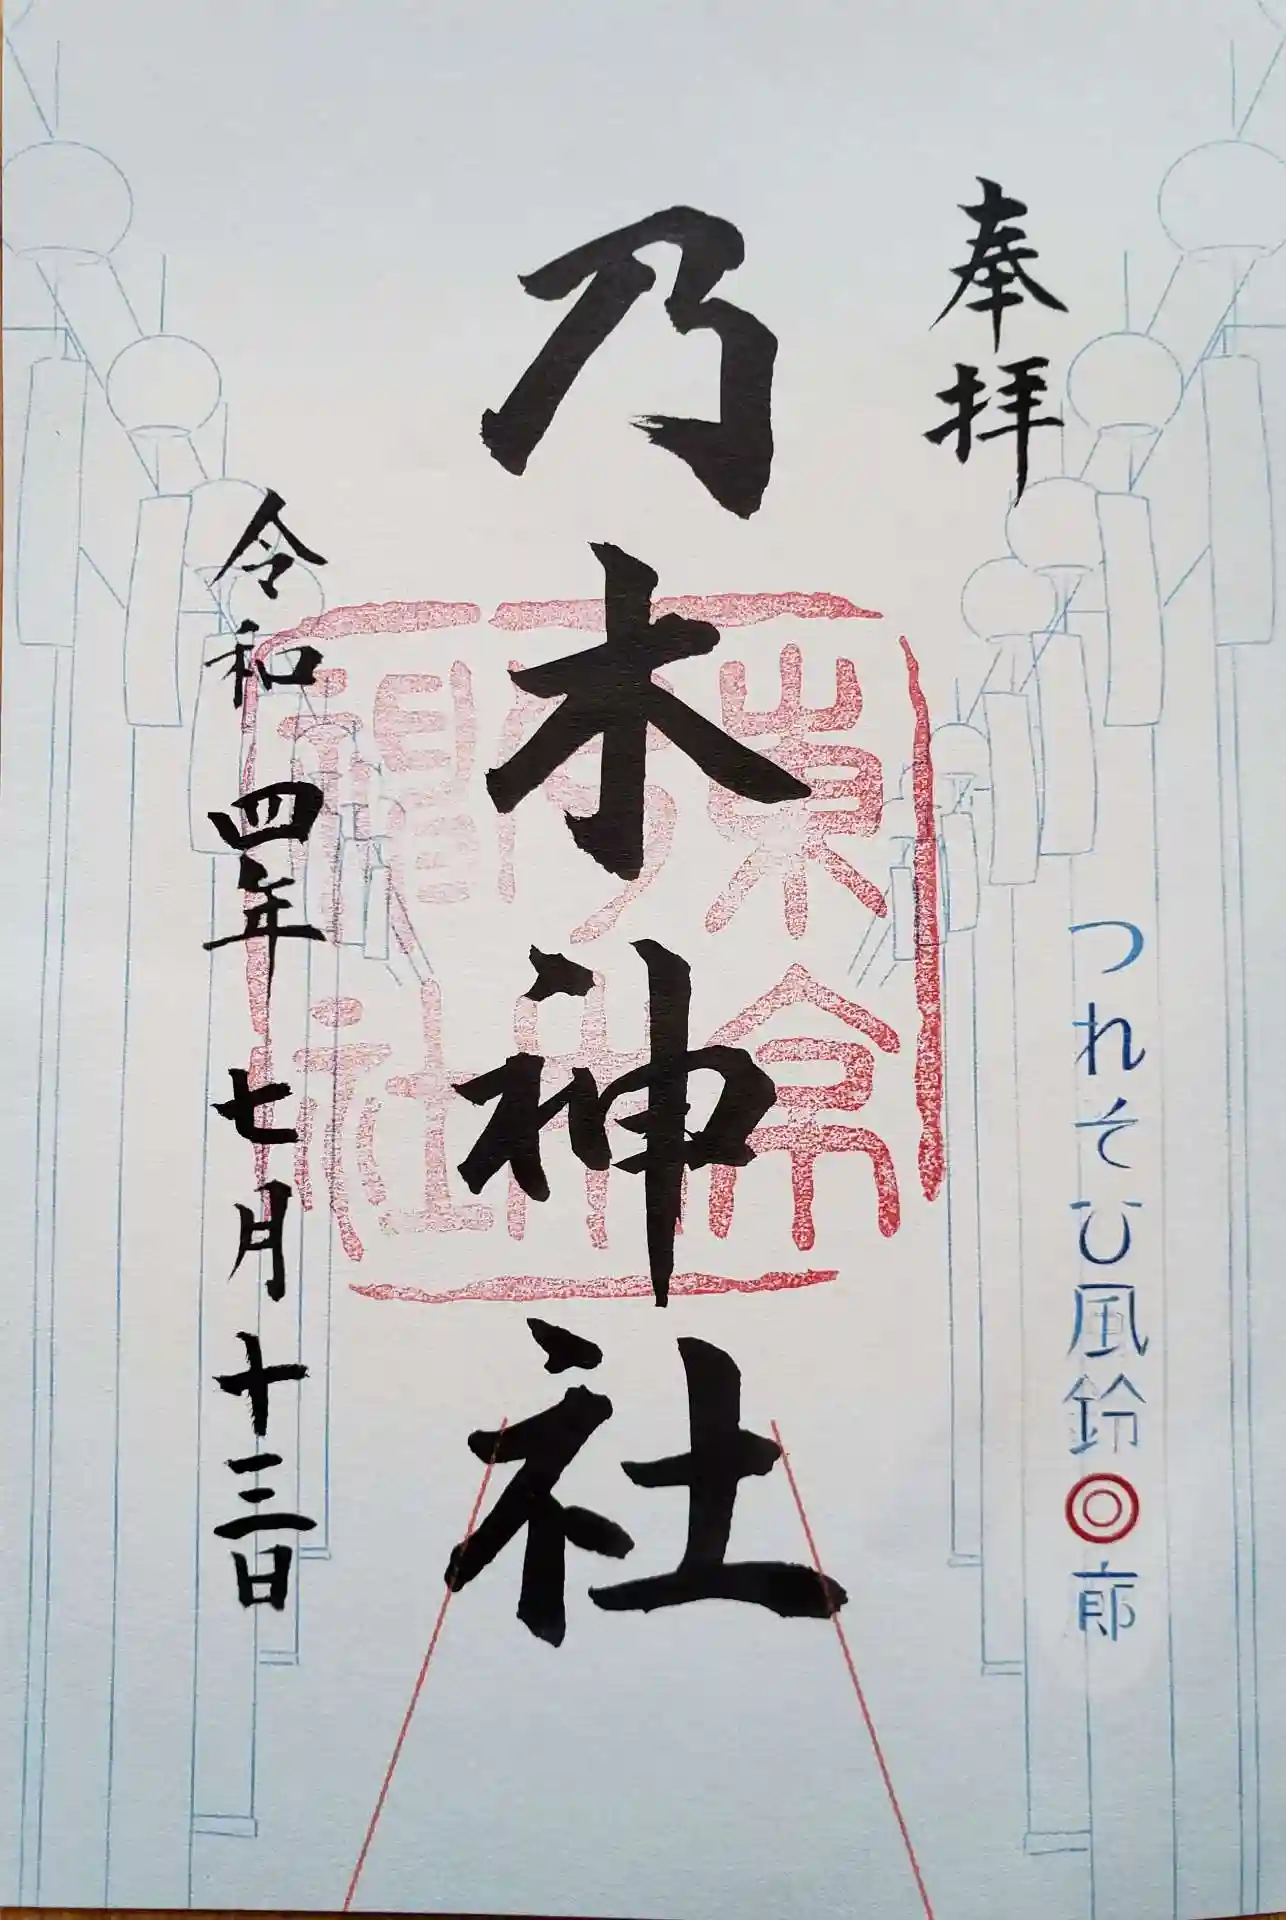 奉拝
つれそひ風鈴回廊
乃木神社
令和四年七月十三日